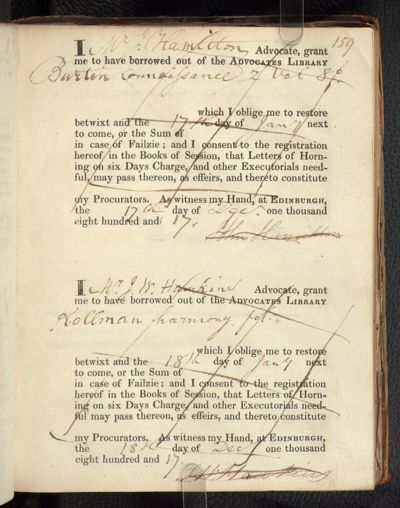 159
I Mr J. Hamilton Advocate, grant
me to have borrowed out of the ADVOCATES LIBRARY
Burtin Connoissance 2 Vol 8º.
which I oblige me to restore
betwixt and the 17th day of Jany next
to come, or the Sum of
in case of Failzie; and I consent to the registration
hereof in the Books of Session, that Letters of Horn-
ing on six Days Charge, and other Executorials need-
ful may pass thereon, as effeirs, and thereto constitute
my Procurators. As witness my Hand, at EDINBURGH,
the 17th day of one thousand
eight hundred and 17.
John Hamilton
I Mr J. W. Hawkins Advocate, grant
me to have borrowed out of the ADVOCATES LIBRARY
Kollman harmony fol.
which I oblige me to restore
betwixt and the 18th day of Jany next
to come, or the Sum of
in case of Failzie; and I consent to the registration
hereof in the Books of Session, that Letters of Horn-
ing on six Days Charge, and other Executorials need-
ful may pass thereon, as effeirs, and thereto constitute
my Procurators. As witness my Hand, at EDINBURGH,
the 18th day of Decr one thousand
eight hundred and 17
Hawkins